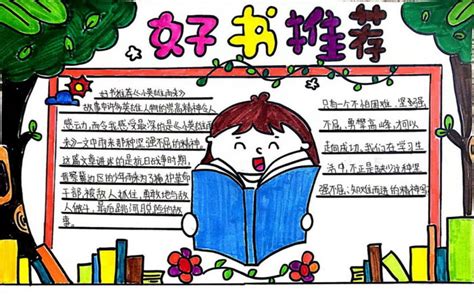 好书推荐
好书推荐《小英雄雨来》
故事中许多英雄人物的崇高精神令人
感动,而令我感受最深的是《小英雄
雨来》文中雨来那种坚强不屈的精神。
这篇文章讲述的是抗日战争时期,
晋察冀边区的少年雨来为了掩护革命
干部,被敌人抓住,勇敢地与敌
人做斗,最后跳河脱险的故
事。
只有一个不怕困难,坚
不屈,勇攀高峰,才可以
走向成功。我们在学习生
活中,不正是缺少这种坚
强不屈、知难而进的精神